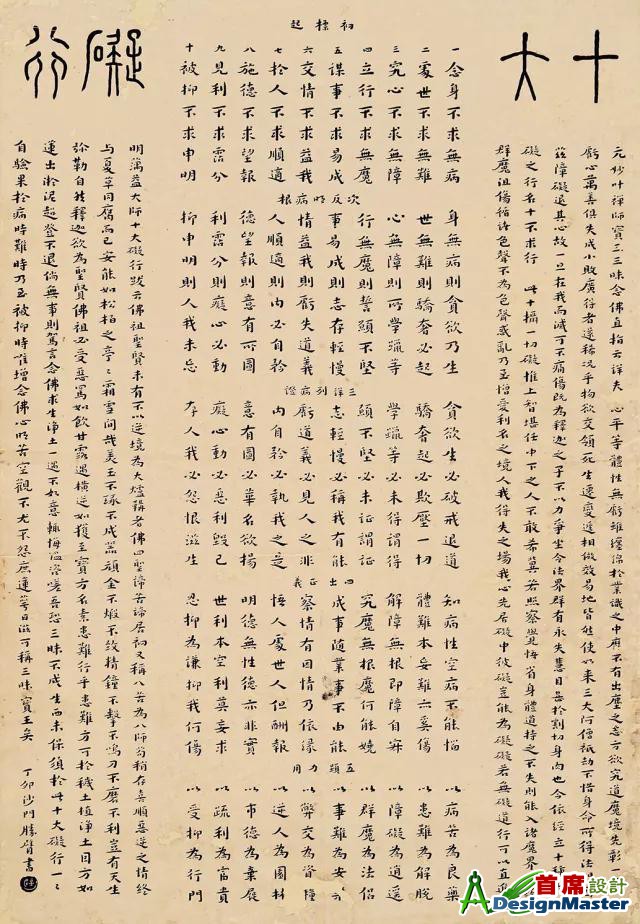 十大
礙行
元妙叶禪師寶王三昧念佛直指云詳夫 心平等體性無虧雖纏綿於業識之中靡不有出塵之志方欲究道魔境先彰
虧心萬善俱失成小敗廣得者還稀況乎物欲交傾死生遷變遞相倣效易地皆然使如來三大阿僧祇劫不惜身命所得法
茲障礙退其心故一旦在我而滅可不痛傷既為釋迦之子不以力爭坐令法界群有永失慧目甚於割切身肉也今依經立十種
礙之行名十不求行 此十攝一切礙惟上智堪任中下之人不敢希冀若照察覺悟省身體道持之不失則能入諸魔界
群魔沮傷循諸色聲不為色聲惑亂乃至憎愛利名之境人我得失之場我心先居礙中彼礙豈能為礙礙若無礙道行可以直進
初標起
一念身不求無病
二處世不求無難
三究心不求無障
四立行不求無魔
五謀事不求易成
六交情不求益我
七於人不求順適
八施德不求望報
九見利不求霑分
十被抑不求申明
次反明病根
身無病則貪欲乃生
世無難則驕奢必起
心無障則所學躐等
行無魔則誓願不堅
事易成則志存輕慢
情益我則虧失道義
人順適則內必自矜
德望報則意有所圖
利霑分則癡心必動
抑申明則人我未忘
三詳列病證
貪欲生必破戒退道
驕奢起必欺壓一切
學躐等必未得謂得
願不堅必未証謂証
志輕慢必稱我有能
虧道義必見人之非
內自矜必執我之是
意有圖必華名欲揚
癡心動必惡利毀己
存人我必怨恨滋生
四出正義
知病性空病不能惱
體難本妄難亦奚傷
解障無根即障自寂
究魔無根魔何能嬈
成事隨業事不由能
察情有因情乃依緣
悟人處世人但酬報
明德無性德亦非實
世利本空利莫妄求
忍抑為謙抑我何傷
五顯力用
以病苦為良藥
以患難為解脫
以障礙為逍遥
以群魔為法侶
以事難為安樂
以弊交為資糧
以逆人為園林
以市德為棄屣
以疏利為富貴
以受抑為行門
明蕅益大師十大礙行跋云佛祖聖賢未有不以逆境為大爐鞴者佛四聖諦苦諦居初又稱八苦為八師苟稍存喜順惡逆之情終
与夏草同腐而已安能如松柏之亭亭霜雪間哉美玉不琢不成器頑金不煅不致精鐘不擊不鳴刀不磨不利豈有天生
彌勒自然釋迦欲為聖賢佛祖必受惡罵如飲甘露遇橫逆如獲至寶方名素患難行乎患難方可於穢土植淨土因方如
蓮出淤泥超登不退倘無事則駕言念佛求生淨土一遇不如意輒悔溢嗟吾恐三昧不成生西未保須於此十大礙行一一
自驗果於病時難時乃至被抑時唯增念佛心明苦空觀不尤不怨庶蓮萼日滋可稱三昧寶王矣
丁卯沙門勝臂書
首席設計
ADesignMaster